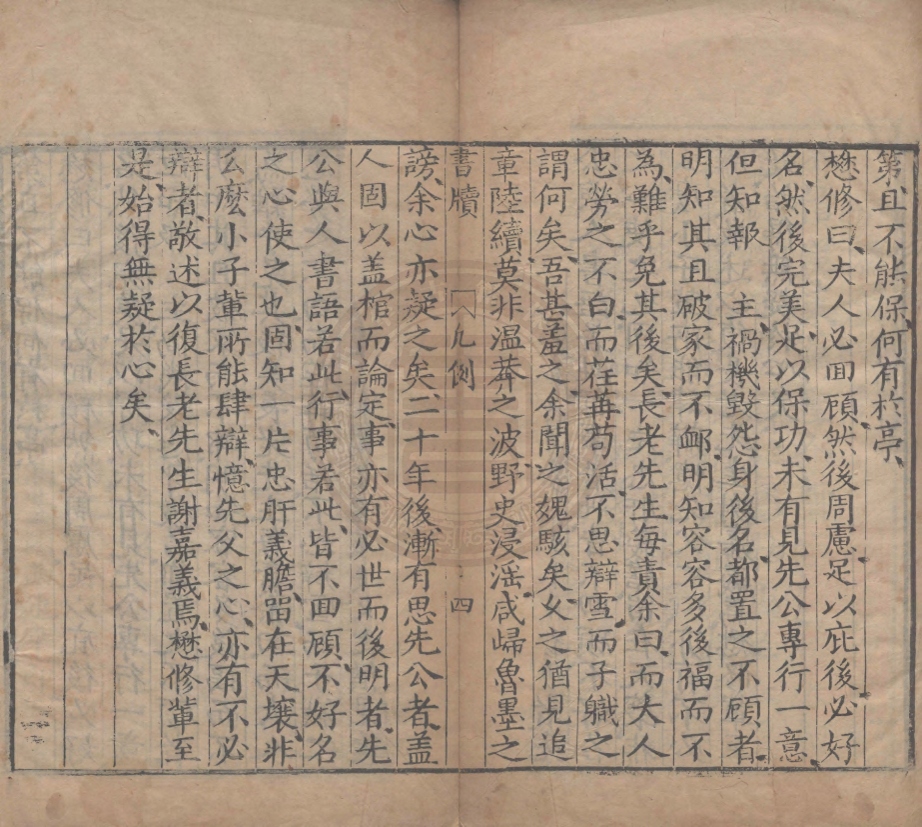 第且不能保何有於亭
懋修曰夫人必回顧然後周慮足以庇後必好
名然後完美足以保功未有見先公專行一意
但知報　主禍機毀怨身後名都置之不顧者
明知其且破家而不䘏明知容容多後福而不
為難乎免其後矣長老先生每責余曰而大人
忠勞之不白而荏苒苟活不思辯雪而子職之
謂何矣吾甚羞之余聞之媿駭矣父之猶見追
章陸續莫非溫莽之波野史浸淫咸歸魯墨之
書牘　凡例　四
謗余心亦疑之矣二十年後漸有思先公者蓋
人固以盖棺而論定事亦有必世而後明者先
公與人書語若此行事若此皆不回顧不好名
之心使之也固知一片忠肝義膽畱在天壤非
么麼小子軰所能肆辯憶先父之心亦有不必
辯者敬述以復長老先生謝嘉義焉懋修軰至
是始得無疑於心矣